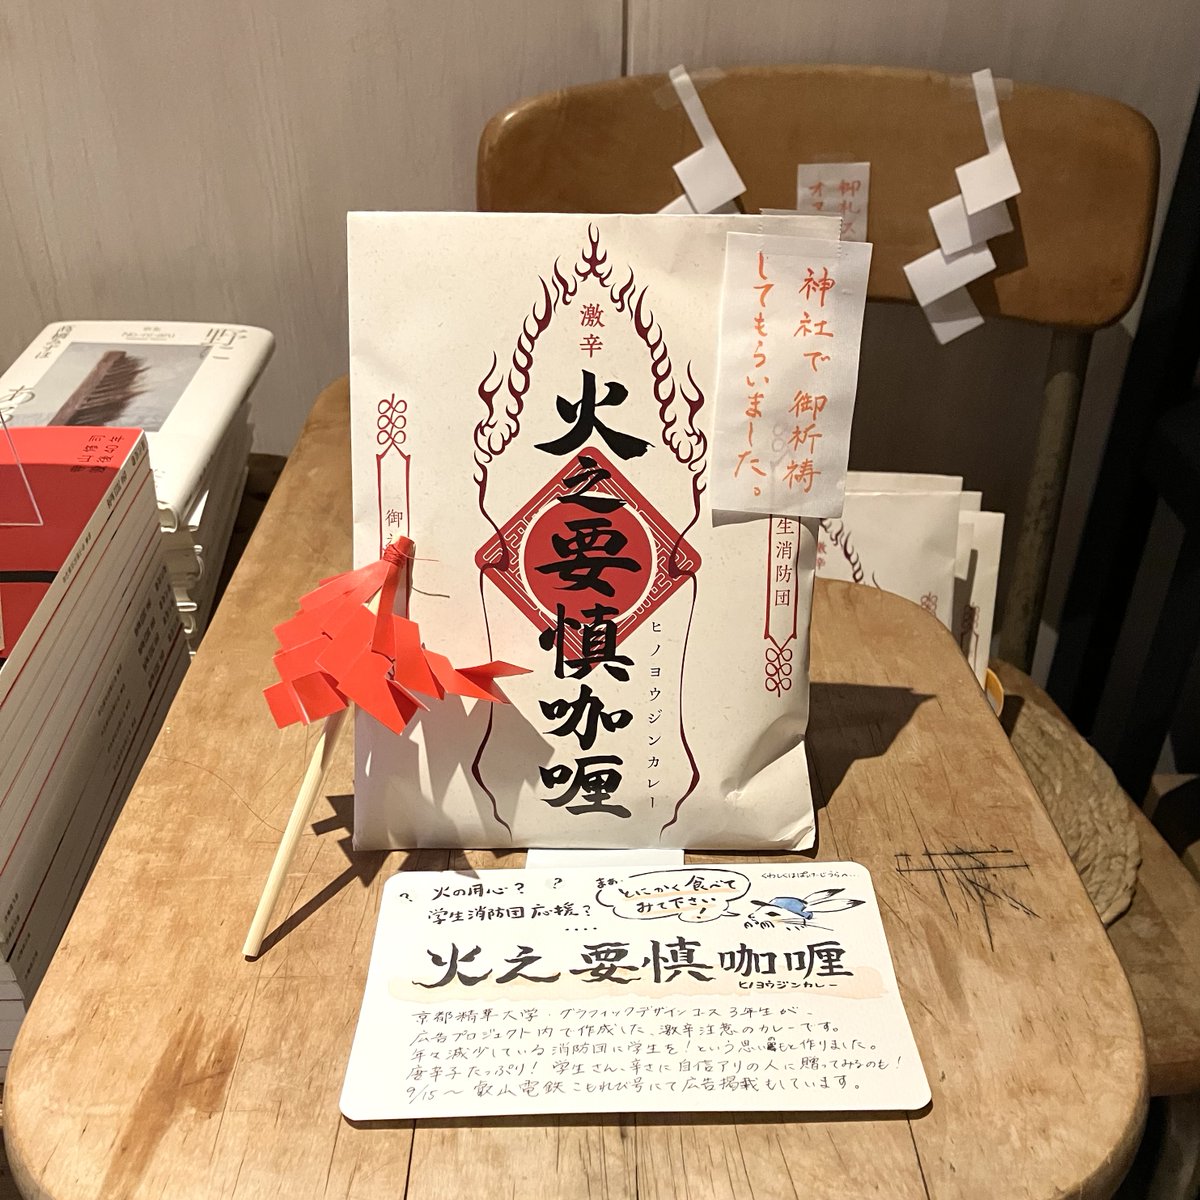 激辛
火之要慎咖喱
ヒノヨウジンカレー
御
生消防団
神社で御祈祷
してもらいました。
御札
激辛
野
あ
？火の用心？？
学生消防団応援？
‥‥
まぁ、
とにかく食べて
みて下さい！
火之要慎咖喱
ヒノヨウジンカレー
京都精華大学・グラフィックデザインコース3年生が、
広告プロジェクト内で作成した、激辛注意のカレーです。
年々減少している消防団に学生を！という思いのもと作りました。
唐辛子たっぷり！学生さん、辛さに自信アリの人に贈ってみるのも！
9/15〜 叡山電鉄こもれび号にて広告掲載もしています。